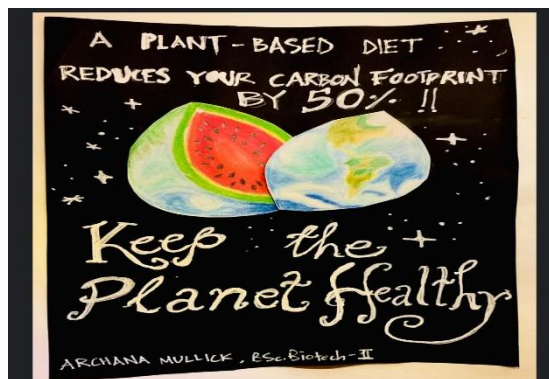 A PLANT-BASED DIET
REDUCES YOUR CARBON FOOTPRINT
BY 50% !!
Keep the
Planet Healthy
ARCHANA MULLICK, BSc.Biotech-II